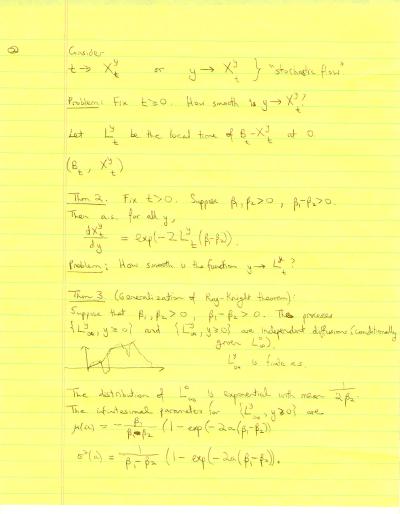 ②
Consider
t → X_t^y or y → X_t^y } "stochastic flow"
Problem: Fix t≥0. How smooth is y → X_t^y?
Let L_t^y be the local time of B_t - X_t^y at 0
(B_t, X_t^y)
Thm 2. Fix t>0. Suppose β₁, β₂>0, β₁-β₂>0.
Then a.s. for all y,
dX_t^y/dy = exp(-2 L_t^y (β₁-β₂)).
Problem: How smooth is the function y → L_t^y?
Thm 3 (Generalization of Ray-Knight theorem):
Suppose that β₁, β₂>0, β₁-β₂>0. The processes
{L_∞^y, y≥0} and {L_∞^-y, y≥0} are independent diffusions (conditionally
given L_∞^0).
L_∞^y is finite a.s.
The distribution of L_∞^0 is exponential with mean 1/2β₂.
The infinitesimal parameters for {L_∞^y, y≥0} are
μ(a) = - β₁/β₁-β₂ (1-exp(-2a(β₁-β₂))
σ²(a) = 1/β₁-β₂ (1-exp(-2a(β₁-β₂)).